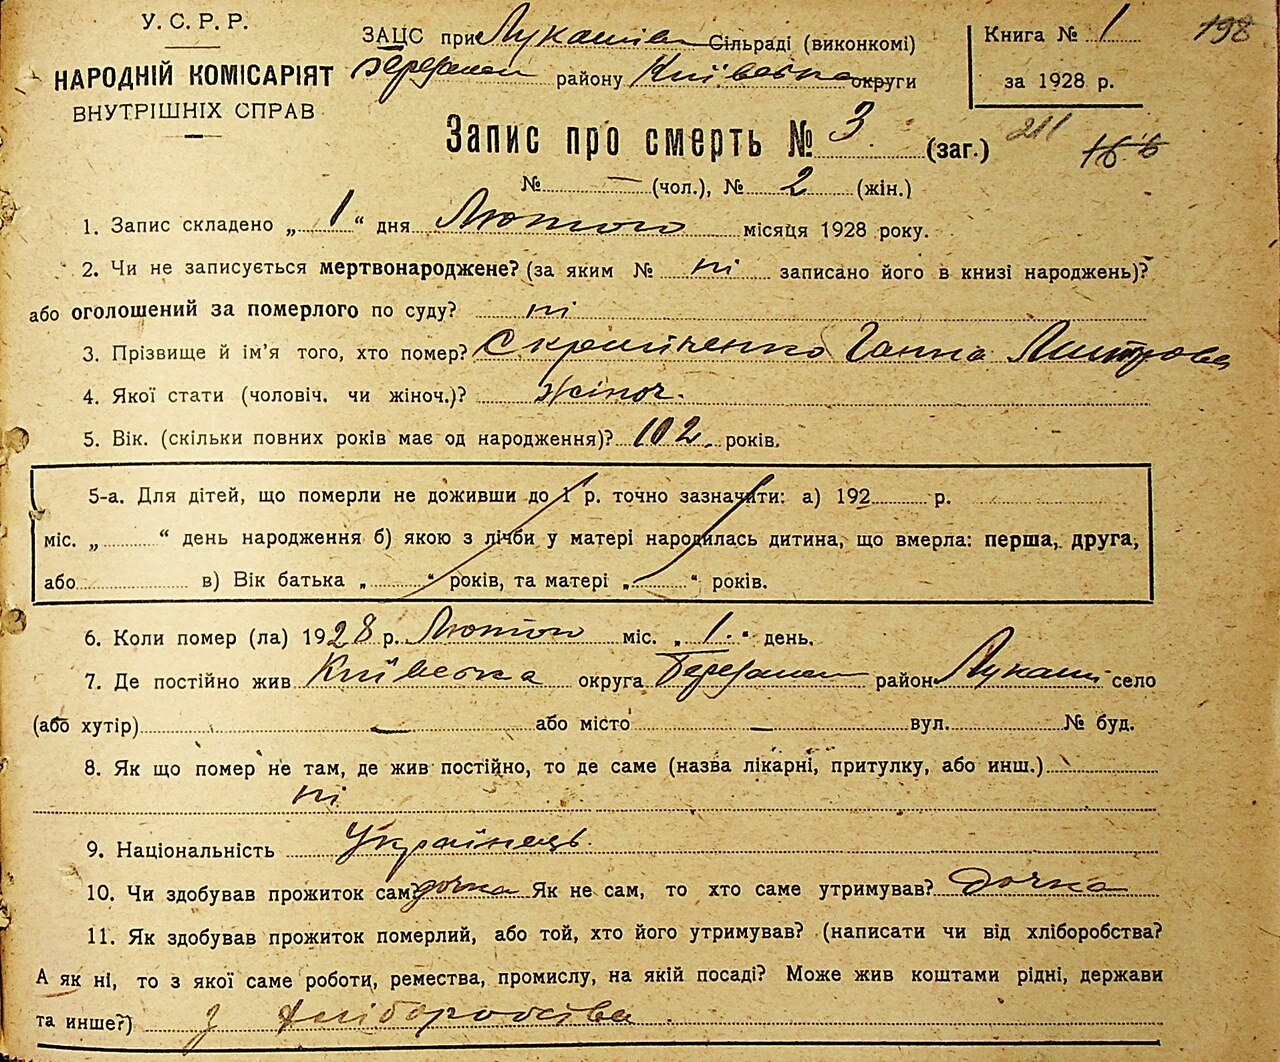 У. С. Р. Р.
НАРОДНІЙ КОМІСАРІЯТ
ВНУТРІШНІХ СПРАВ
ЗАЦС при Лукашів Сільраді (виконкомі)
району Київська округи
Книга № 1
за 1928 р.
198
Запис про смерть № 3 (заг.)
211
166
№ — (чол.), № 2 (жін.)
1. Запис складено „ 1 “ дня Лютого місяця 1928 року.
2. Чи не записується мертвонароджене? (за яким № ні записано його в книзі народжень)?
або оголошений за померлого по суду? ні
3. Прізвище й ім'я того, хто помер? Ганна Митрова
4. Якої стати (чоловіч. чи жіноч.)? жіноч.
5. Вік. (скільки повних років має од народження)? 102 років.
5-а. Для дітей, що померли не доживши до 1 р. точно зазначити: а) 192 р.
міс. „ “ день народження б) якою з лічби у матері народилась дитина, що вмерла: перша, друга,
або в) Вік батька „ “ років, та матері „ “ років.
6. Коли помер (ла) 1928 р. Лютого міс. „ 1. “ день.
7. Де постійно жив Київська округа Березанськ район Лукаші село
(або хутір) — або місто — вул. № буд.
8. Як що помер не там, де жив постійно, то де саме (назва лікарні, притулку, або инш.)
ні
9. Національність Українець.
10. Чи здобував прожиток сам? дочка Як не сам, то хто саме утримував? Дочка
11. Як здобував прожиток померлий, або той, хто його утримував? (написати чи від хліборобства?
А як ні, то з якої саме роботи, ремества, промислу, на якій посаді? Може жив коштами рідні, держави
та инше?) з хліборобсіва